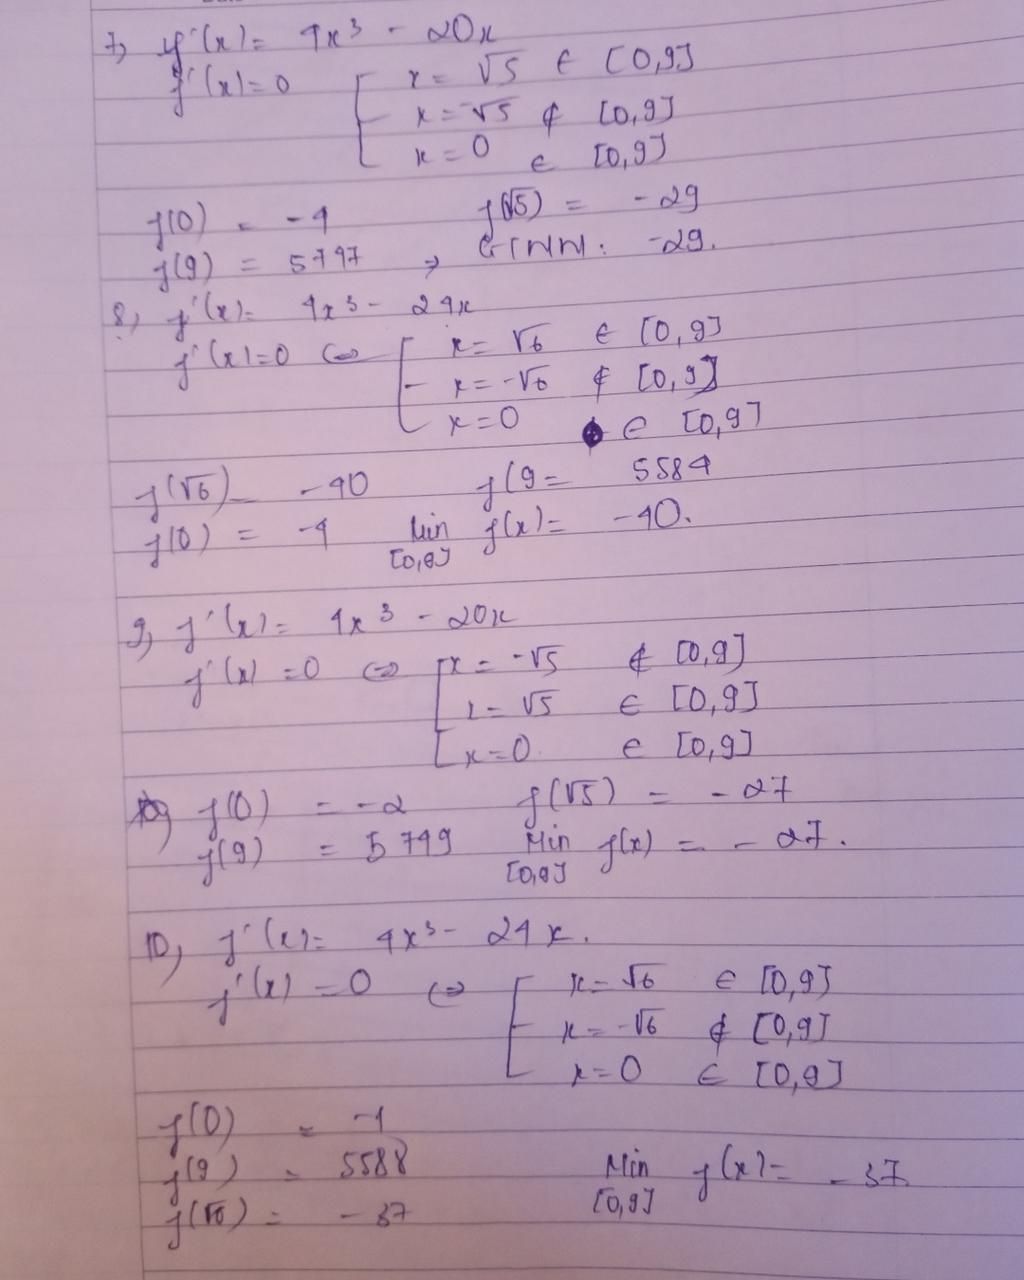 7) f'(x) = 4x³ - 20x
f'(x) = 0 [ x = √5 ∈ [0,9]
x = -√5 ∉ [0,9]
x = 0 ∈ [0,9]
f(0) = -4 f(√5) = -29
f(9) = 5747 → GTNN: -29.
8) f'(x) = 4x³ - 24x
f'(x) = 0 ⇔ [ x = √6 ∈ [0,9]
x = -√6 ∉ [0,9]
x = 0 ∈ [0,9]
f(√6) = -40 f(9 = 5584
f(0) = -4 Min f(x) = -40.
[0,9]
9) f'(x) = 4x³ - 20x
f'(x) = 0 ⇔ [ x = -√5 ∉ [0,9]
x = √5 ∈ [0,9]
x = 0 ∈ [0,9]
f(0) = -2 f(√5) = -27
f(9) = 5749 Min f(x) = -27.
[0,9]
10) f'(x) = 4x³ - 24x.
f'(x) = 0 ⇔ [ x = √6 ∈ [0,9]
x = -√6 ∉ [0,9]
x = 0 ∈ [0,9]
f(0) = -1
f(9) = 5588 Min f(x) = -37.
f(√6) = -37 [0,9]